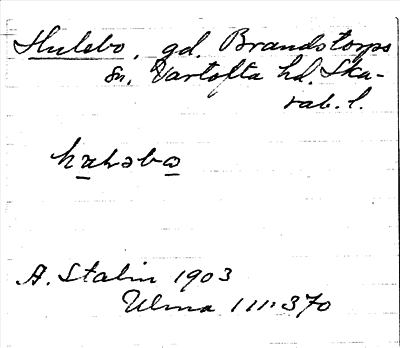 Hulebo, gd. Brandstorps
sn, Vartofta hd. Ska-
rab. l.
A. Stalin 1903
Ulma 111:370